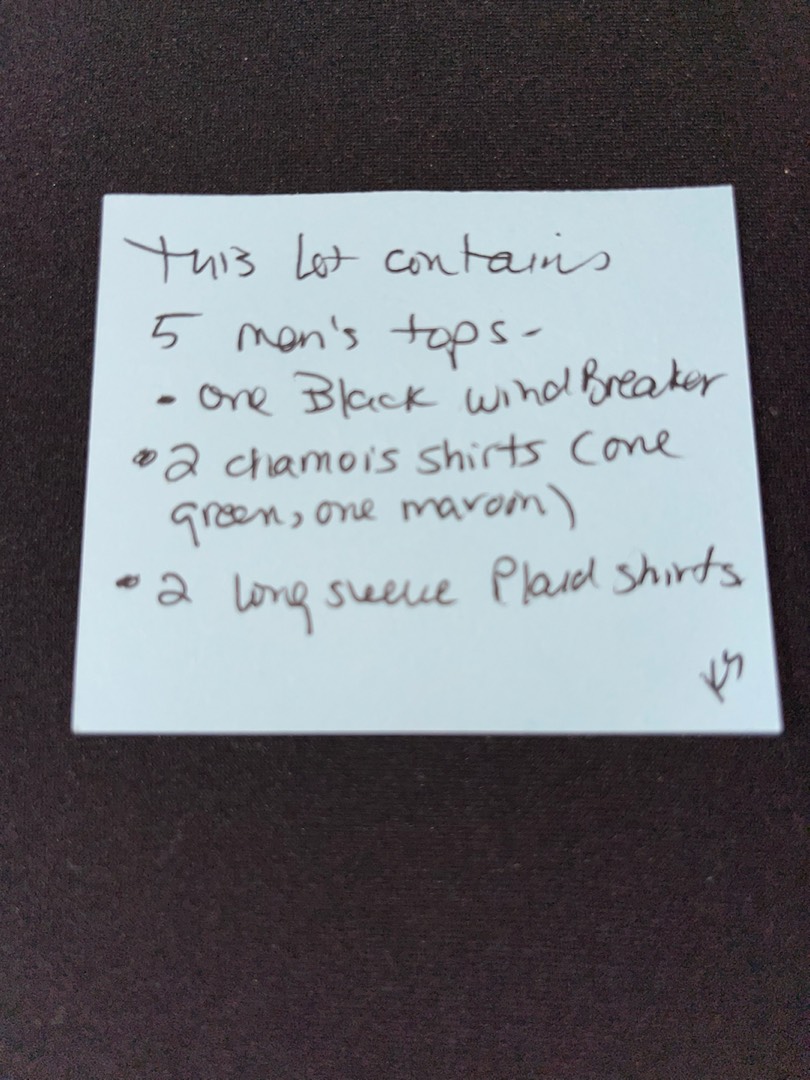 This Lot contains
5 men's tops-
- one Black windBreaker
• 2 chamois shirts (one
green, one maroon)
• 2 long sleeve Plaid shirts